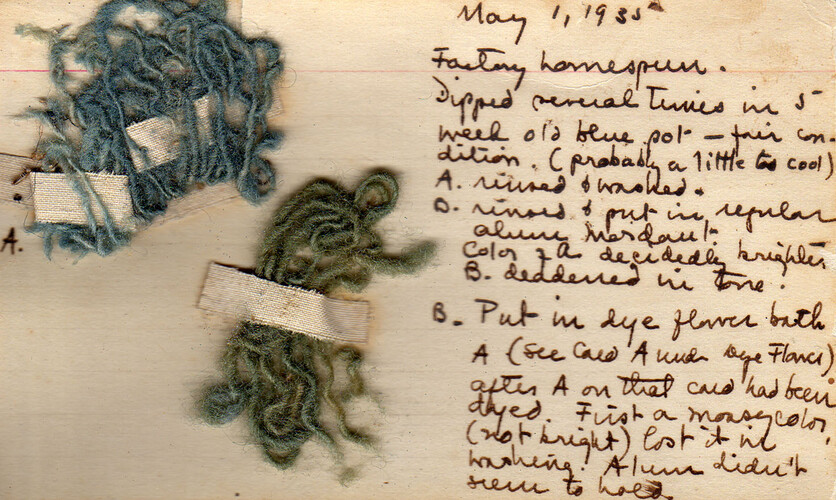 May 1, 1935
Factory homespun.
Dipped several times in 5
week old blue pot — fair con-
dition. (probably a little too cool)
A. rinsed & washed.
B. rinsed & put in regular
alum mordant.
Color of A decidedly brighter
B. deadened in tone.
A.
B. Put in dye flower bath
A (see Card A under Dye Flower)
after A on that card had been
dyed. First a mousey color,
(not bright) lost it in
washing. Alum didn't
seem to hold.